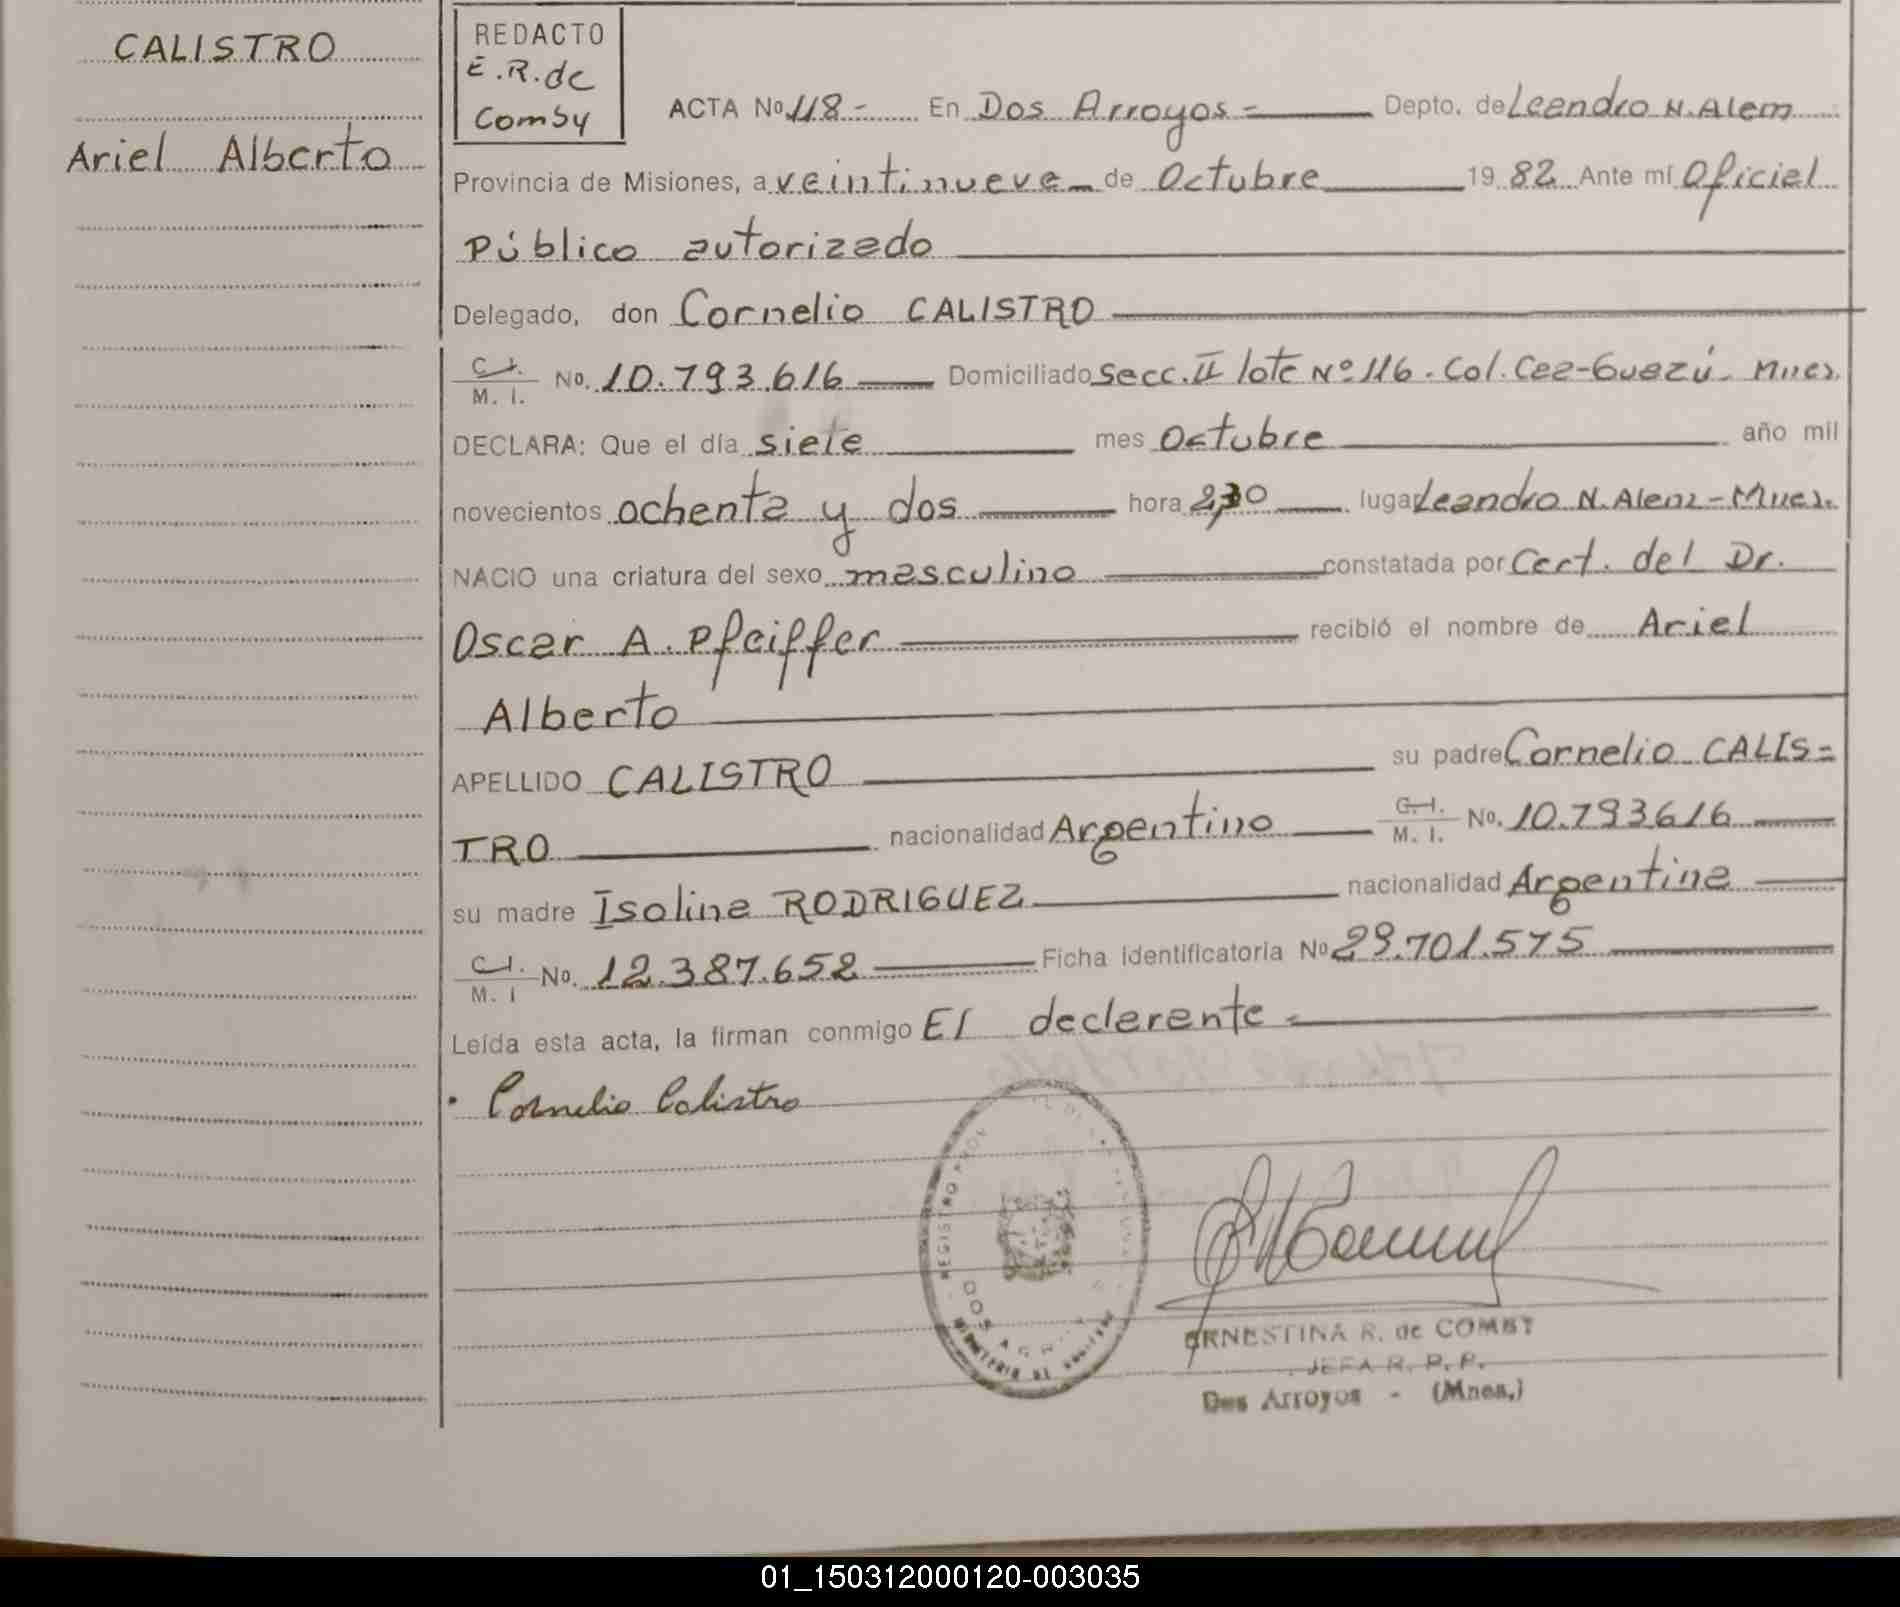 CALISTRO
Ariel Alberto
REDACTO
E.R.de
Comby
ACTA No 118- En Dos Arroyos= Depto. de Leandro N. Alem
Provincia de Misiones, a veintinueve de Octubre 19 82 Ante mí Oficial
Público autorizado
Delegado, don Cornelio CALISTRO
C.I. M. I. No. 10.793.616 Domiciliado Secc. II lote Nº 116. Col. Caa-Guazú. Mnes.
DECLARA: Que el día siete mes Octubre año mil
novecientos ochenta y dos hora 2,30 lugar Leandro N. Alem-Mnes.
NACIO una criatura del sexo masculino constatada por Cert. del Dr.
Oscar A. Pfeiffer recibió el nombre de Ariel
Alberto
APELLIDO CALISTRO su padre Cornelio CALIS=
TRO nacionalidad Argentino C.I. M. I. No. 10.793616
su madre Isolina RODRIGUEZ nacionalidad Argentina
C.I. M. I No. 12.387.652 Ficha identificatoria No 29.701.575
Leída esta acta, la firman conmigo El declarante=
Cornelio Calistro
REGISTRO
DOS
ERNESTINA R. de COMBY
JEFA R. P. P.
Dos Arroyos - (Mnes.)
01_150312000120-003035